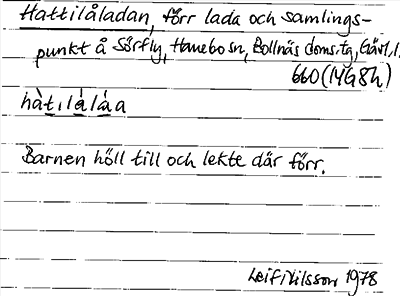 Hattilåladan, förr lada och samlings-
punkt å Sörfly, Hanebo sn, Bollnäs doms.tg, Gävl.l.
660 (14G8h)
hàt.ilålàa
Barnen höll till och lekte där förr.
Leif Nilsson 1978